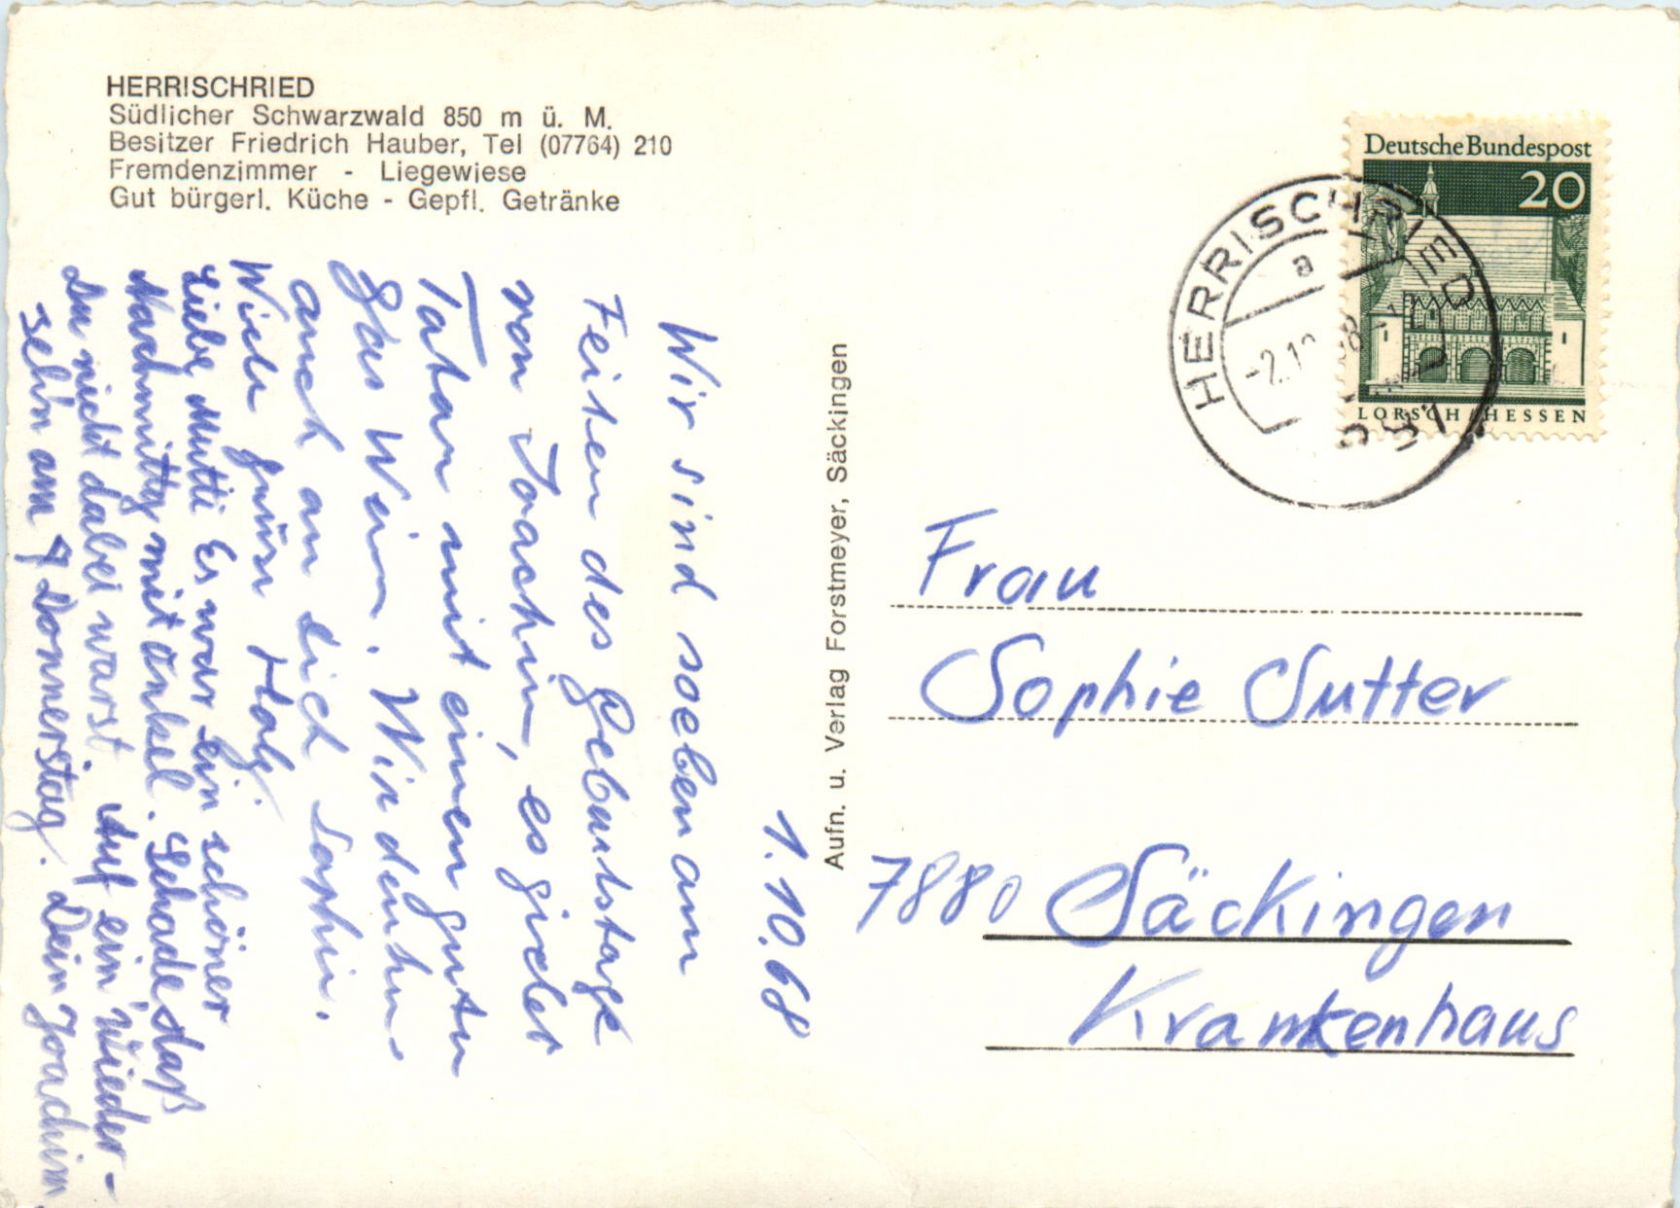 HERRISCHRIED
Südlicher Schwarzwald 850 m ü. M.
Besitzer Friedrich Hauber, Tel (07764) 210
Fremdenzimmer - Liegewiese
Gut bürgerl. Küche - Gepfl. Getränke
1.10.68
Wir sind soeben am
Feiern des Geburtstage
von Joachim, es gieder
Tatar mit einen guten
Glas Wein. Wir denken
auch an dich Sophie.
Viele Grüse
Liebe Mutti Es war ein schöner
Nachmittag mit Onkel. Schade daß
Du nicht dabei warst. Auf ein Wieder-
sehn am Donnerstag. Dein Joachim
Aufn. u. Verlag Forstmeyer, Säckingen
Deutsche Bundespost
20
LORSCH/HESSEN
HERRISCHRIED
a
Frau
Sophie Sutter
7880 Säckingen
Krankenhaus